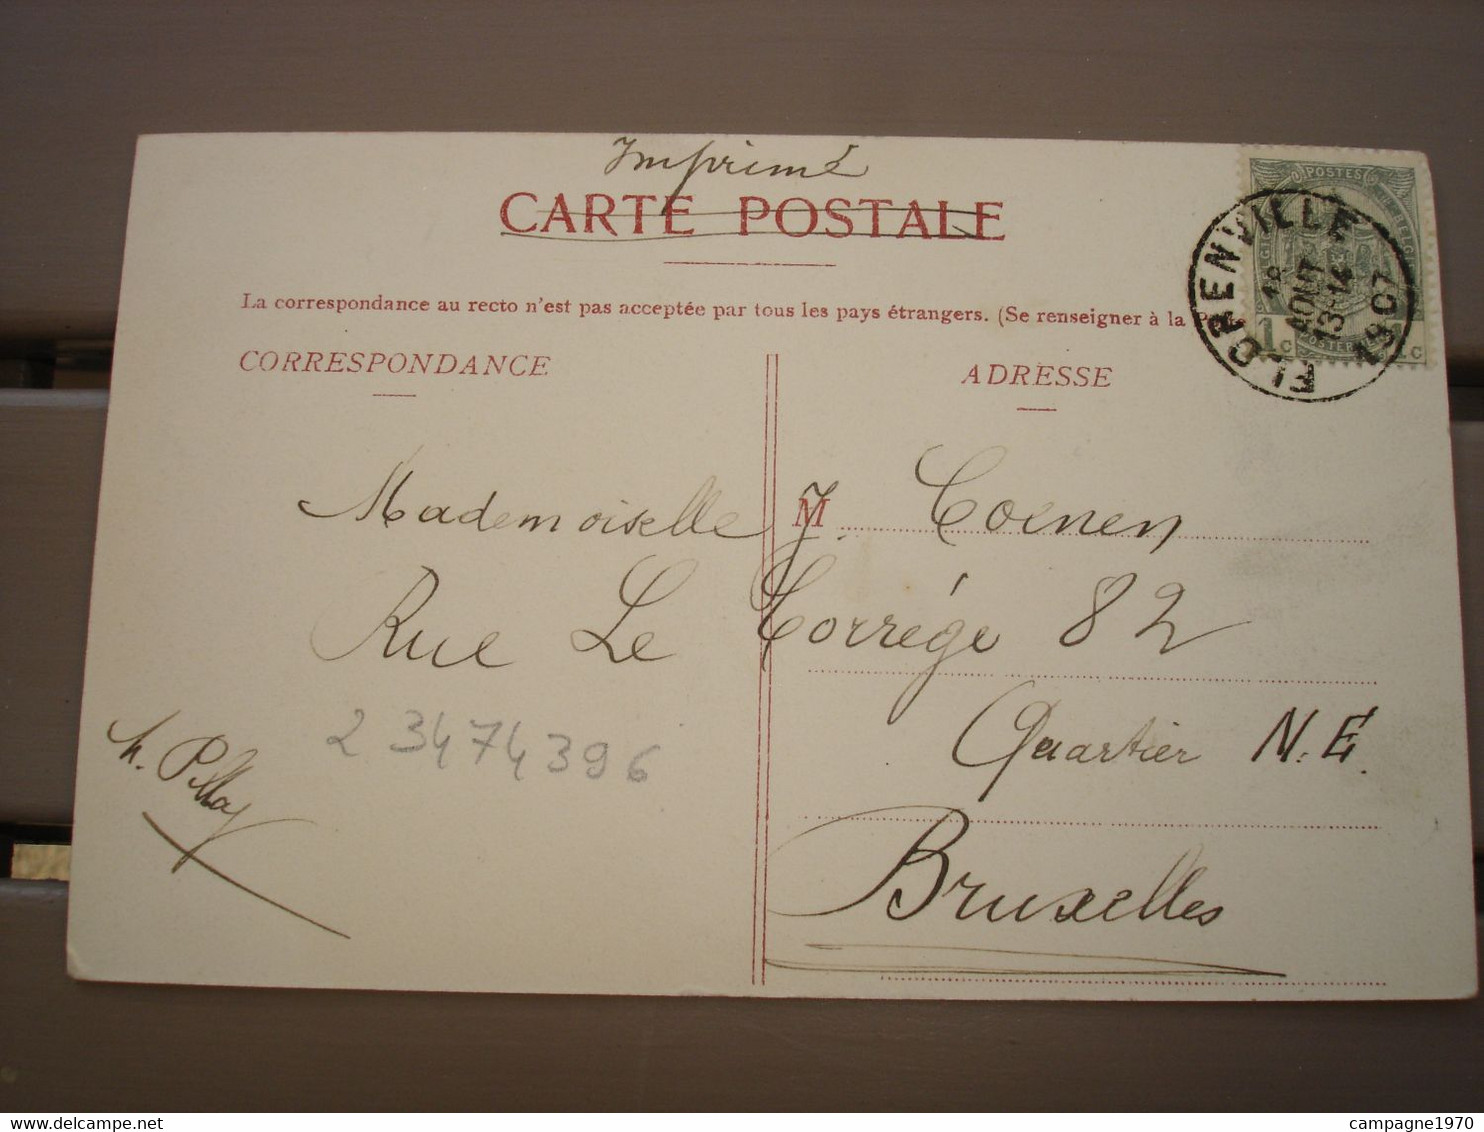 Imprimé
CARTE POSTALE
La correspondance au recto n'est pas acceptée par tous les pays étrangers. (Se renseigner à la
POSTES
1c 1c
FLORENVILLE
18
AOUT
13-14
1907
CORRESPONDANCE
ADRESSE
M
Mademoiselle J. Coenen
Rue Le Corrége 82
Quartier N.E.
Bruxelles
2 3474396
campagne1970